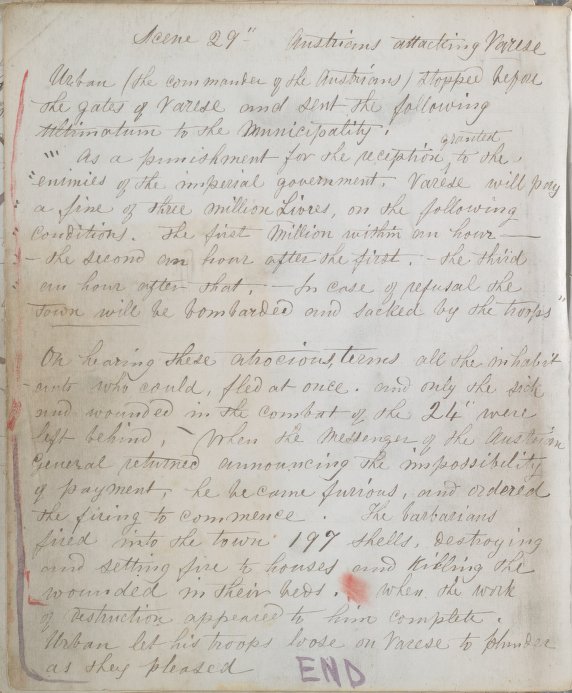 Scene 29" Austrians attacking Varese
Urban (the commander of the Austrians) stopped before
the gates of Varese and sent the following
Ultimatum to the Municipality.
granted
"' As a punishment for the reception, to the
"enimies of the imperial government. Varese will pay
a fine of three million Livres, on the following
conditions. The first Million within an hour —
- the second an hour after the first. - the third
an hour after that. — In case of refusal the
town will be bombarded and sacked by the troops"
On hearing these atrocious, terms all the inhabit
-ants who could, fled at once. and only the sick
and wounded in the combat of the 24" were
left behind, — When the Messenger of the Austrian
General returned announcing the impossibility
of payment, he became furious, and ordered
the firing to commence. The barbarians
fired into the town 197 shells, destroying
and setting fire to houses and killing the
wounded in their beds. When the work
of destruction appeared to him complete.
Urban let his troops loose on Varese to plunder
as they pleased END